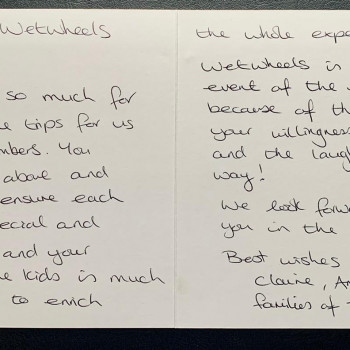 Wetwheels
so much for
trips for us
You
above and
ensure each
and
and your
kids is much
to enrich
the whole
Wetwheels is
event of the
because of
your
and the
way!
We look
you in the
Best wishes
Claire,
families of